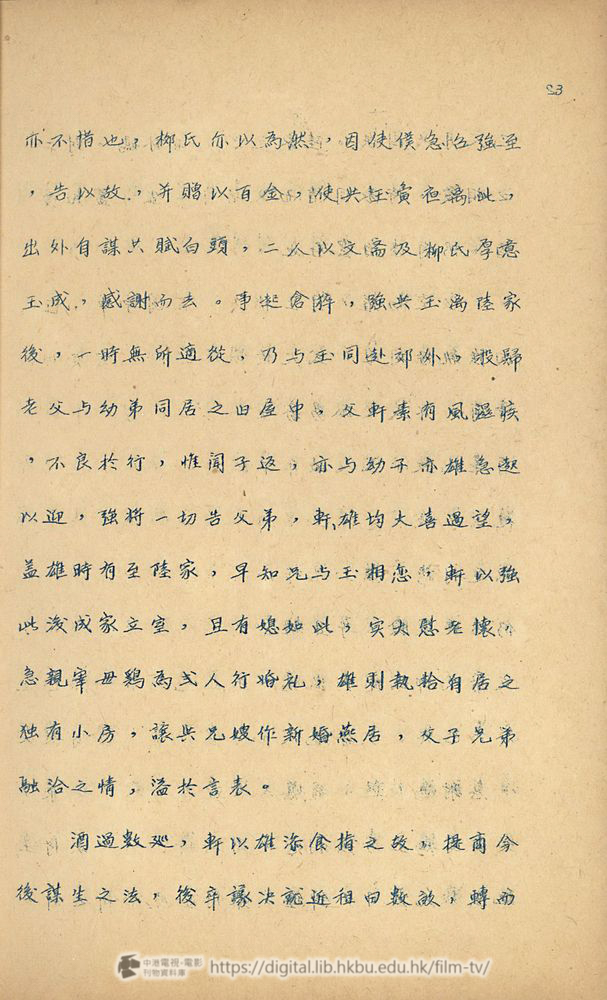 23
亦不惜也，柳氏亦以為然，因使僕急召強至
，告以故，并贈以百金，使與玉寅夜離此，
出外自謀共賦白頭，二人以文斋及柳氏厚意
玉成，感謝而去。事起倉猝，強與玉离陸家
後，一時無所適從，乃与玉同赴郊外
老父与幼弟同居之旧屋中，父軒素有風湿
，不良於行，惟闻子返，亦与幼子亦雄急起
以迎，強将一切告父弟，軒、雄均大喜過望，
盖雄時有至陸家，早知兄与玉相恋，軒以強
此後成家立室，且有媳如此，实大慰老懷，
急親宰毋鷄為弍人行婚礼，雄則執拾自居之
独有小房，讓與兄嫂作新婚燕居，父子兄弟
融洽之情，溢於言表。
酒過数廵，軒以雄添食指之故，提商今
後謀生之法，後卒議决就近租田数畝，轉而
中港電視·電影
刊物資料庫
https://digital.lib.hkbu.edu.hk/film-tv/